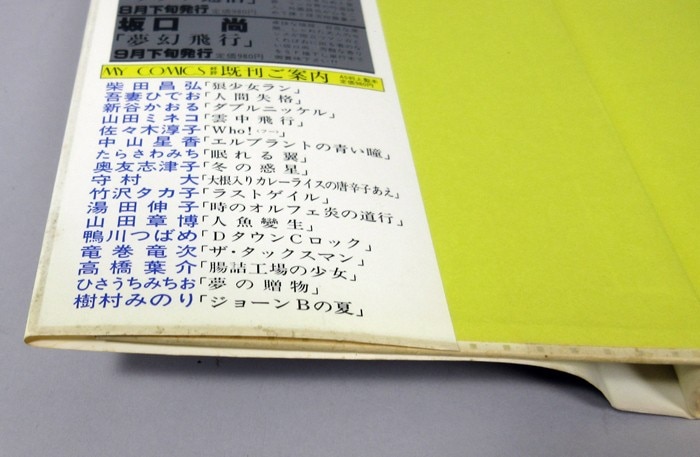 8月下旬発行 定価980円
坂口 尚
「夢幻飛行」
9月下旬発行 定価980円
MY COMICS 既刊ご案内
柴田昌弘「狼少女ラン」
吾妻ひでお「人間失格」
新谷かおる「ダブルニッケル」
山田ミネコ「雲中飛行」
佐々木淳子「Who!(フー)」
中山星香「エルブラントの青い瞳」
たらさわみち「眠れる翼」
奥友志津子「冬の惑星」
守村 大「大根入りカレーライスの唐辛子あえ」
竹沢タカ子「ラストゲイル」
湯田伸子「時のオルフェ炎の道行」
山田章博「人魚變生」
鴨川つばめ「DタウンCロック」
竜巻竜次「ザ・タックスマン」
高橋葉介「腸詰工場の少女」
ひさうちみちお「夢の贈物」
樹村みのり「ジョーンBの夏」